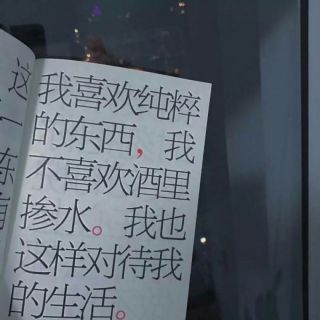 我喜欢纯粹
的东西，我
不喜欢酒里
掺水。我也
这样对待我
的生活。
这
一
陈